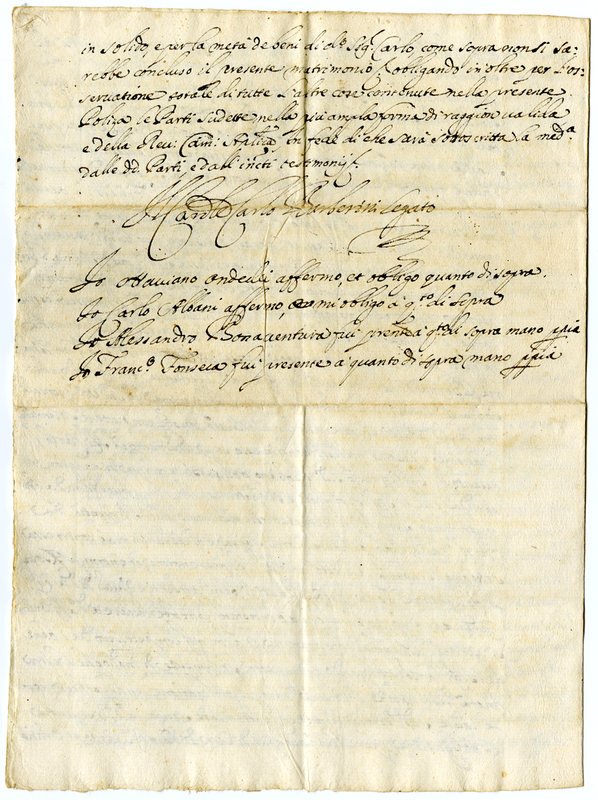 in solido, e per la metà de beni di do. Sigr. Carlo, come sopra non si sa-
rebbe concluso il presente matrimonio, obligando in oltre per l'os-
servatione totale di tutte l'altre cose contenute nella presente
Poliza le Parti sudette nella più ampla forma di raggion valida
e della Reu: Cam: Aplica, in fede di che sarà sottoscritta la meda.
dalle dd. Parti, e dall' infrti testimonij
Il Cardle Carlo Barberini Legato
Io Ottaviano affermo, et obligo quanto di sopra.
Io Carlo Albani affermo, e mi obligo a qto di sopra
Io Alessandro Bonaventura fui prente a qto di sopra mano ppia
Io Franco. Fonseca fui presente a quanto di sopra mano ppia